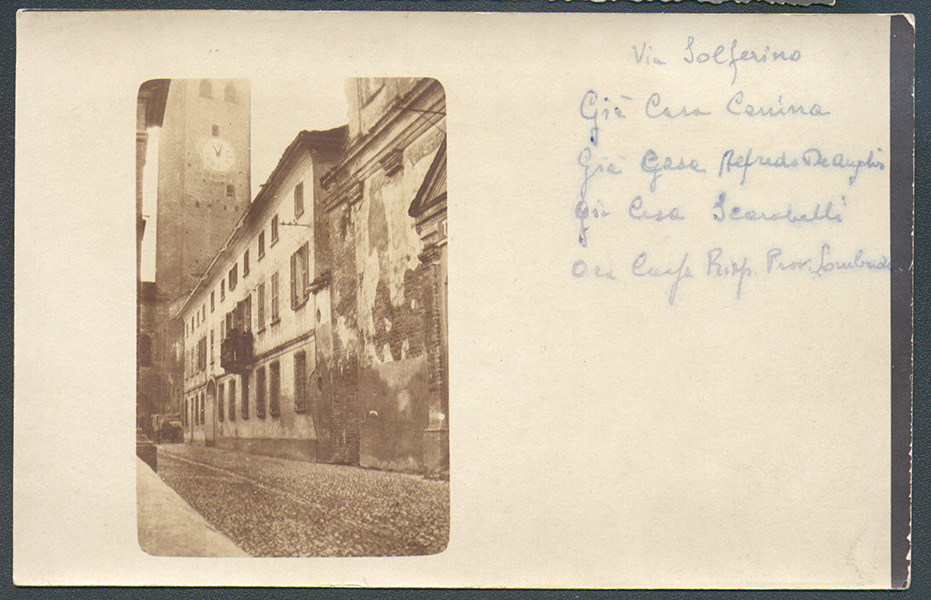 Via Solferino
Già Casa Cenina
Già Casa Alfredo DeAngelis
Già Casa Scarabelli
Ora Cassa Risp. Prov. Lombarde